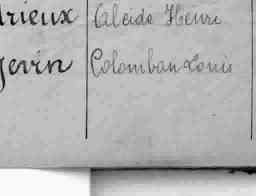 drieux Alcide Henri
Jevin Colomban Louis